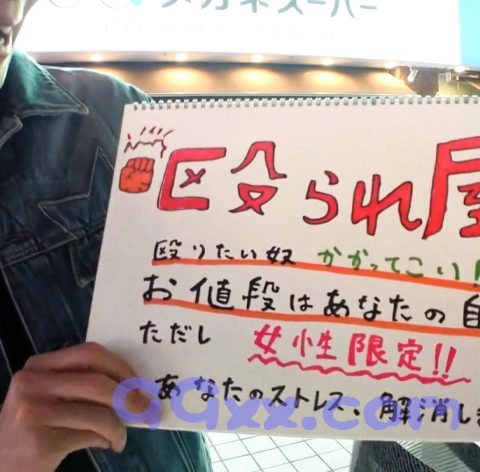 メガネスーパー
殴られ屋
殴りたい奴 かかってこい!!
お値段はあなたの自
ただし 女性限定!!
あなたのストレス、解消しま
qqxx.com